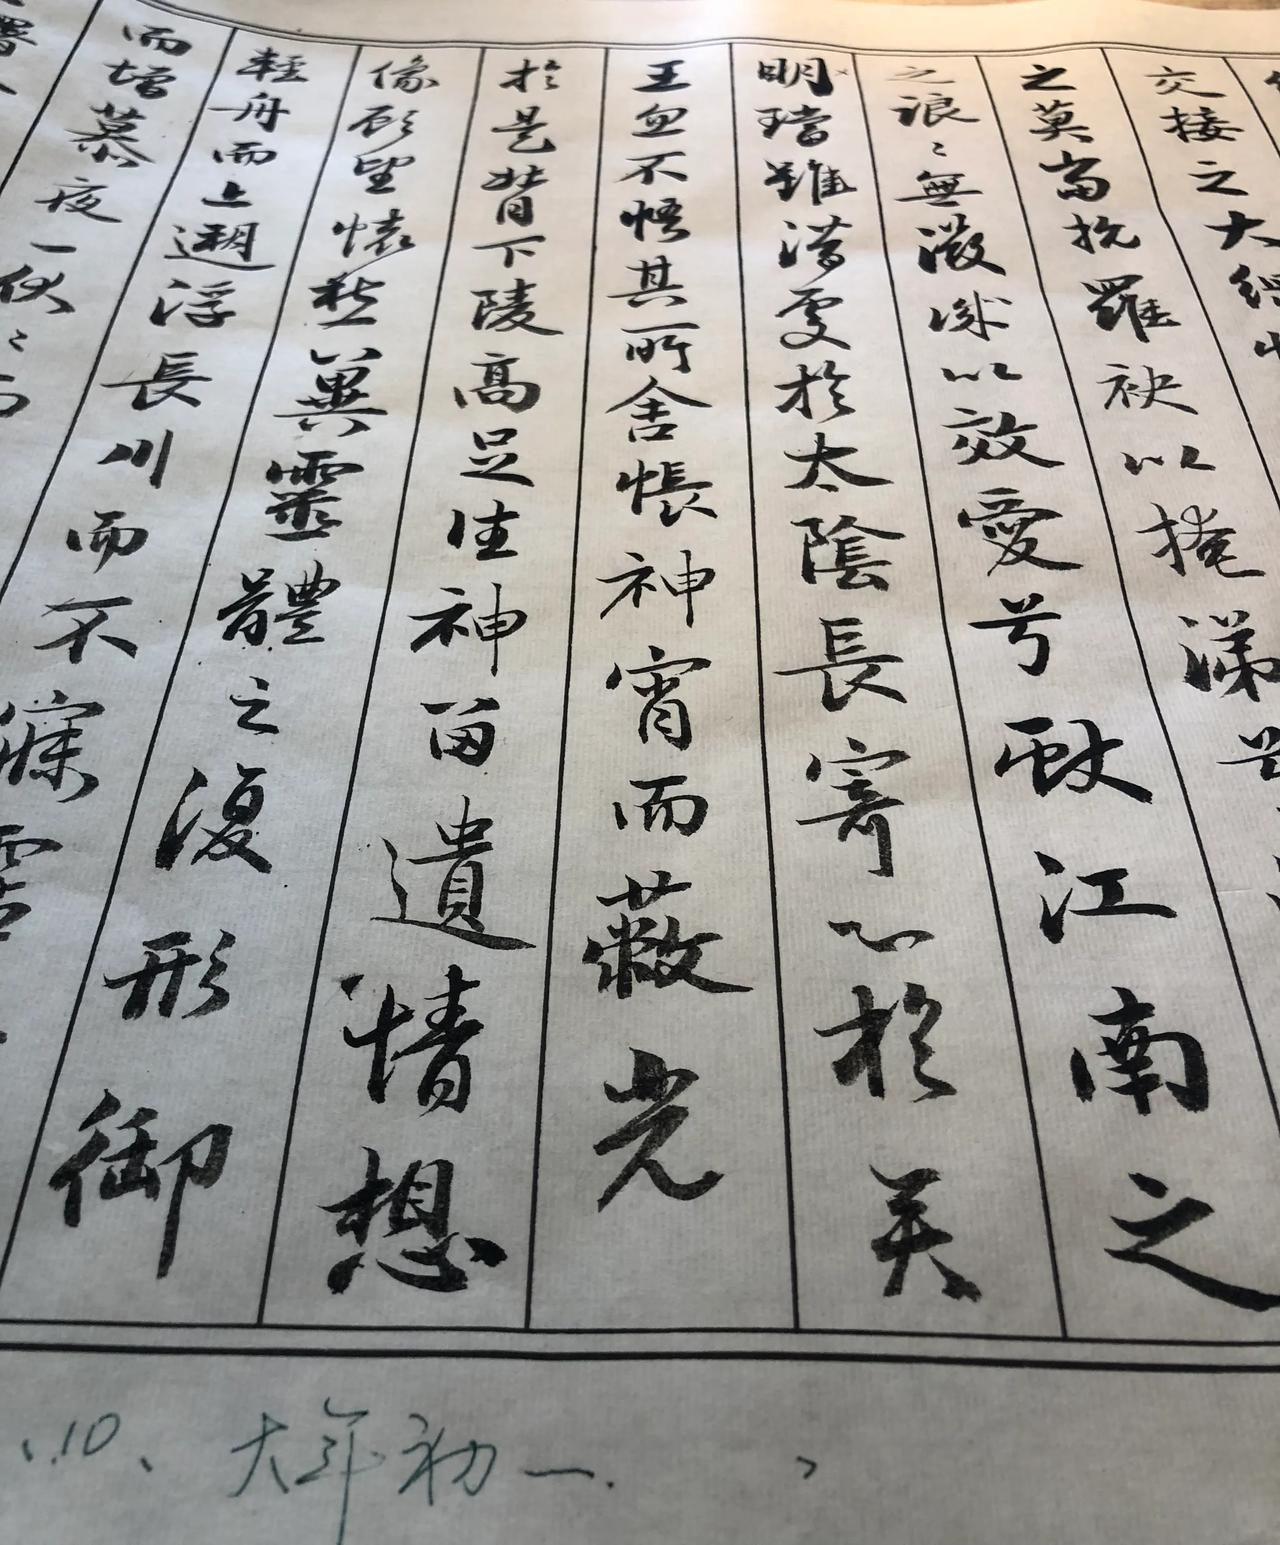 交接之大
之莫當抗羅袂以掩涕
之浪〻無微情以效愛兮獻江南之
明璫雖潛處於太陰長寄心於君
王忽不悟其所舍悵神宵而蔽光
於是背下陵高足往神留遺情想
像顧望懷愁冀靈體之復形御
輕舟而上遡浮長川而不
而增慕夜
寐霑
.10、大年初一.